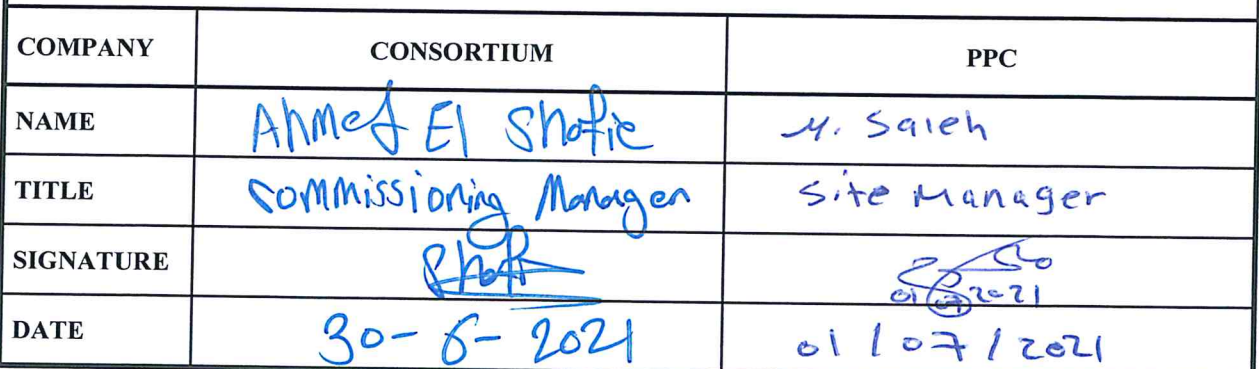 COMPANY CONSORTIUM PPC
NAME Ahmed El Shafie M. Saleh
TITLE Commissioning Manager Site Manager
SIGNATURE Shafi
01/07/2021
DATE 30-6-2021 01/07/2021